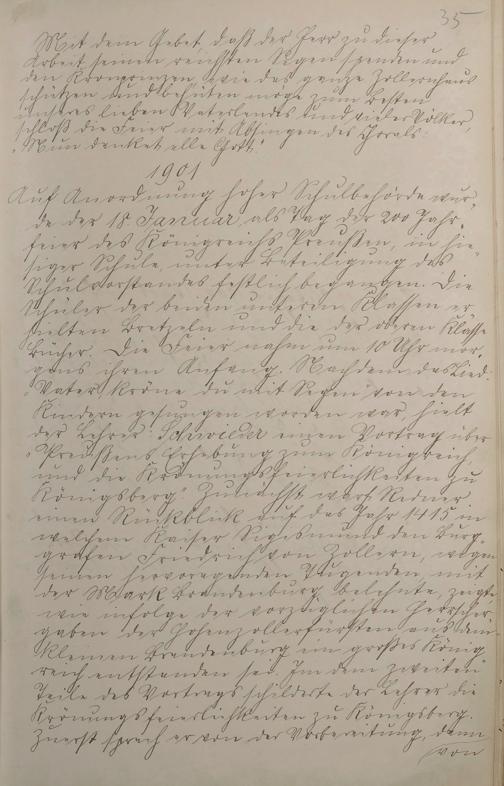 35
Mit dem Gebet, daß der Herr zu dieser
Arbeit seinen reichsten Segen spenden und
den Kronprinzen, wie das ganze Zollernhaus
schützen und behüten möge zum Besten
unseres lieben Vaterlandes und vieler Völker,
schloß die Feier mit Absingen des Chorals:
"Nun danket alle Gott."
1901
Auf Anordnung hoher Schulbehörde wur-
de der 18. Januar, als Tag der 200 Jahr-
feier des Königreichs Preußen, in hie-
siger Schule, unter Beteiligung des
Schulvorstandes festlich begangen. Die
Schüler der beiden unteren Klassen er-
hielten Bretzeln und die der oberen Klasse
Bücher. Die Feier nahm um 10 Uhr mor-
gens ihren Anfang. Nachdem das Lied:
"Vater kröne du mit Segen" von den
Kindern gesungen worden war, hielt
der Lehrer einen Vortrag über
"Preußens Erhebung zum Königreich
und die Krönungsfeierlichkeiten zu
Königsberg." Zunächst warf Redner
einen Rückblick auf das Jahr 1415 in
welchem Kaiser Sigismund den Burg-
grafen Friedrich von Zollern, wegen
seinen hervoragenden Tugenden, mit
der Mark Brandenburg belehnte, zeigte
wie infolge der vorzüglichen Herrscher-
gaben der Hohenzollerfürsten aus dem
kleinen Brandenburg ein großes König-
reich entstanden sei. Im dem zweiten
Teile des Vortrags schilderte der Lehrer die
Krönungsfeierlichkeiten zu Königsberg.
Zuerst sprach er von der Vorbereitung, dann
von